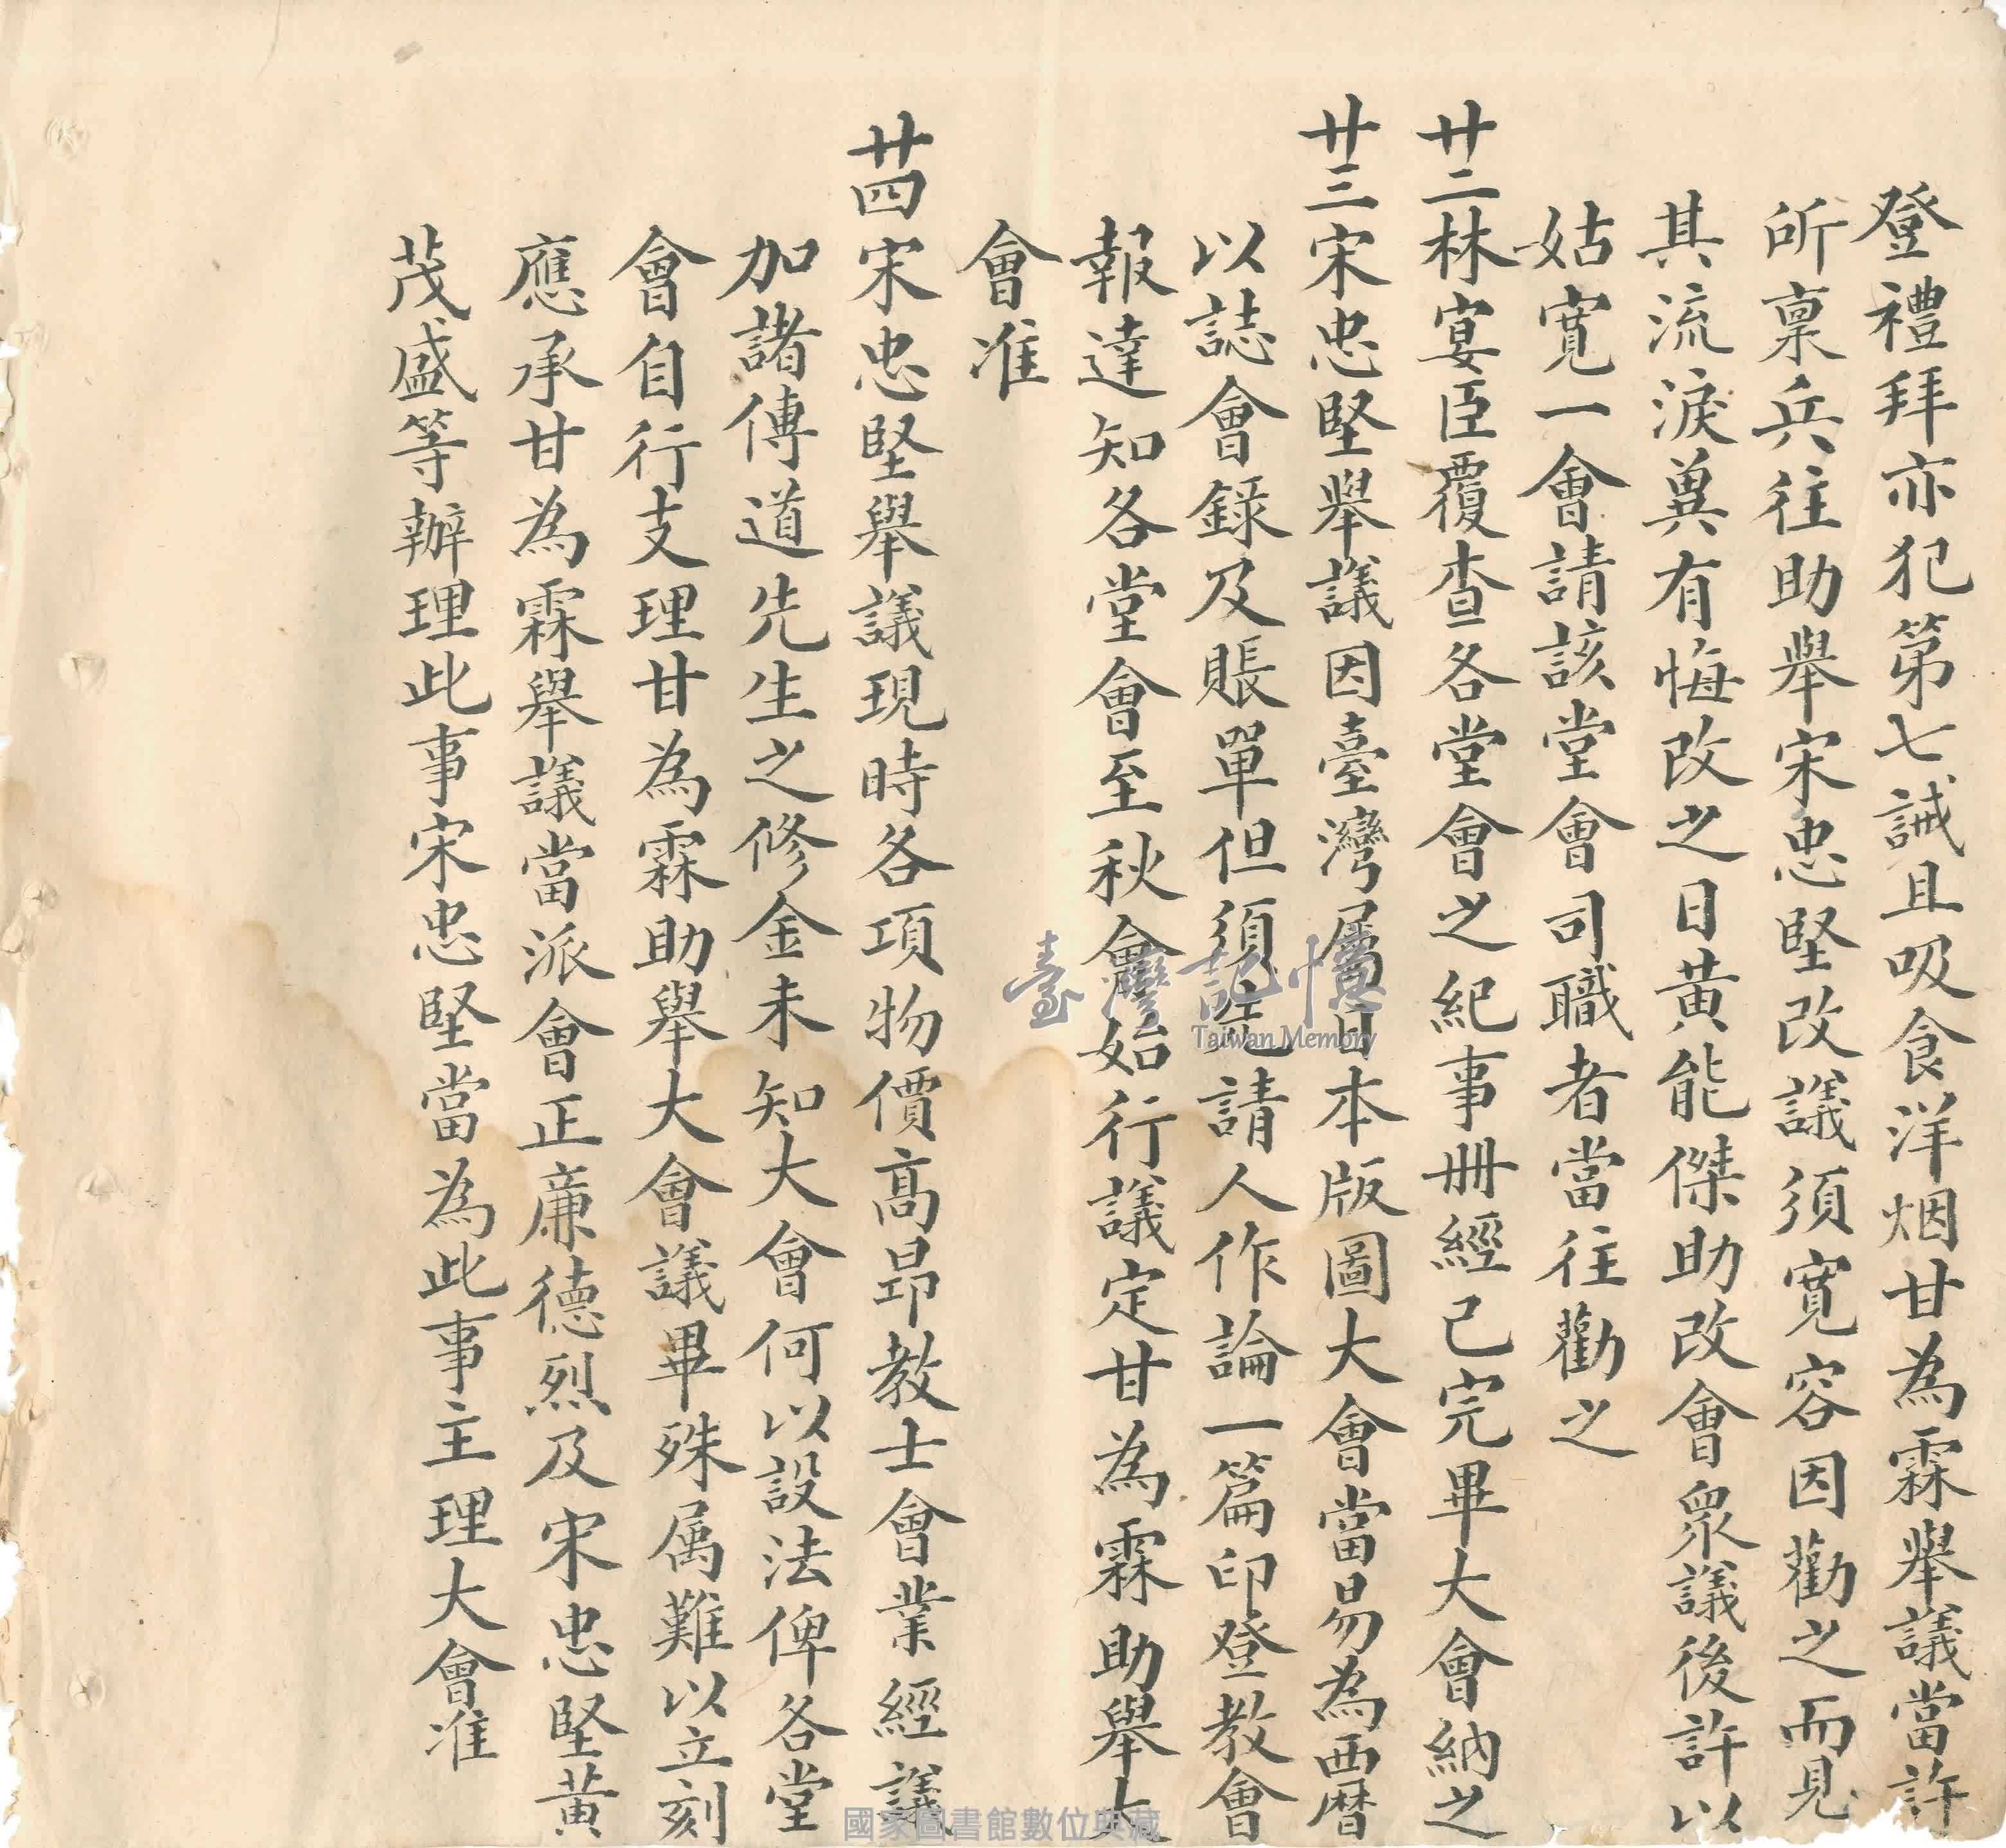 登禮拜亦犯第七誡且吸食洋烟甘為霖舉議當許
所稟兵往助舉宋忠堅改議須寬容因勸之而見
其流淚兾有悔改之日黃能傑助改會眾議後許以
姑寬一會請該堂會司職者當往勸之
廿二林宴臣覆查各堂會之紀事冊經已完畢大會納之
廿三宋忠堅舉議因臺灣屬日本版圖大會當易為西曆
以誌會錄及賬單但須先請人作論一篇印登教會
報達知各堂會至秋會始行議定甘為霖助舉大
會准
廿四宋忠堅舉議現時各項物價高昂教士會業經議
加諸傳道先生之修金未知大會何以設法俾各堂
會自行支理甘為霖助舉大會議畢殊属難以立刻
應承甘為霖舉議當派會正廉德烈及宋忠堅黃
茂盛等辦理此事宋忠堅當為此事主理大會准
臺灣記憶
Taiwan Memory
國家圖書館數位典藏